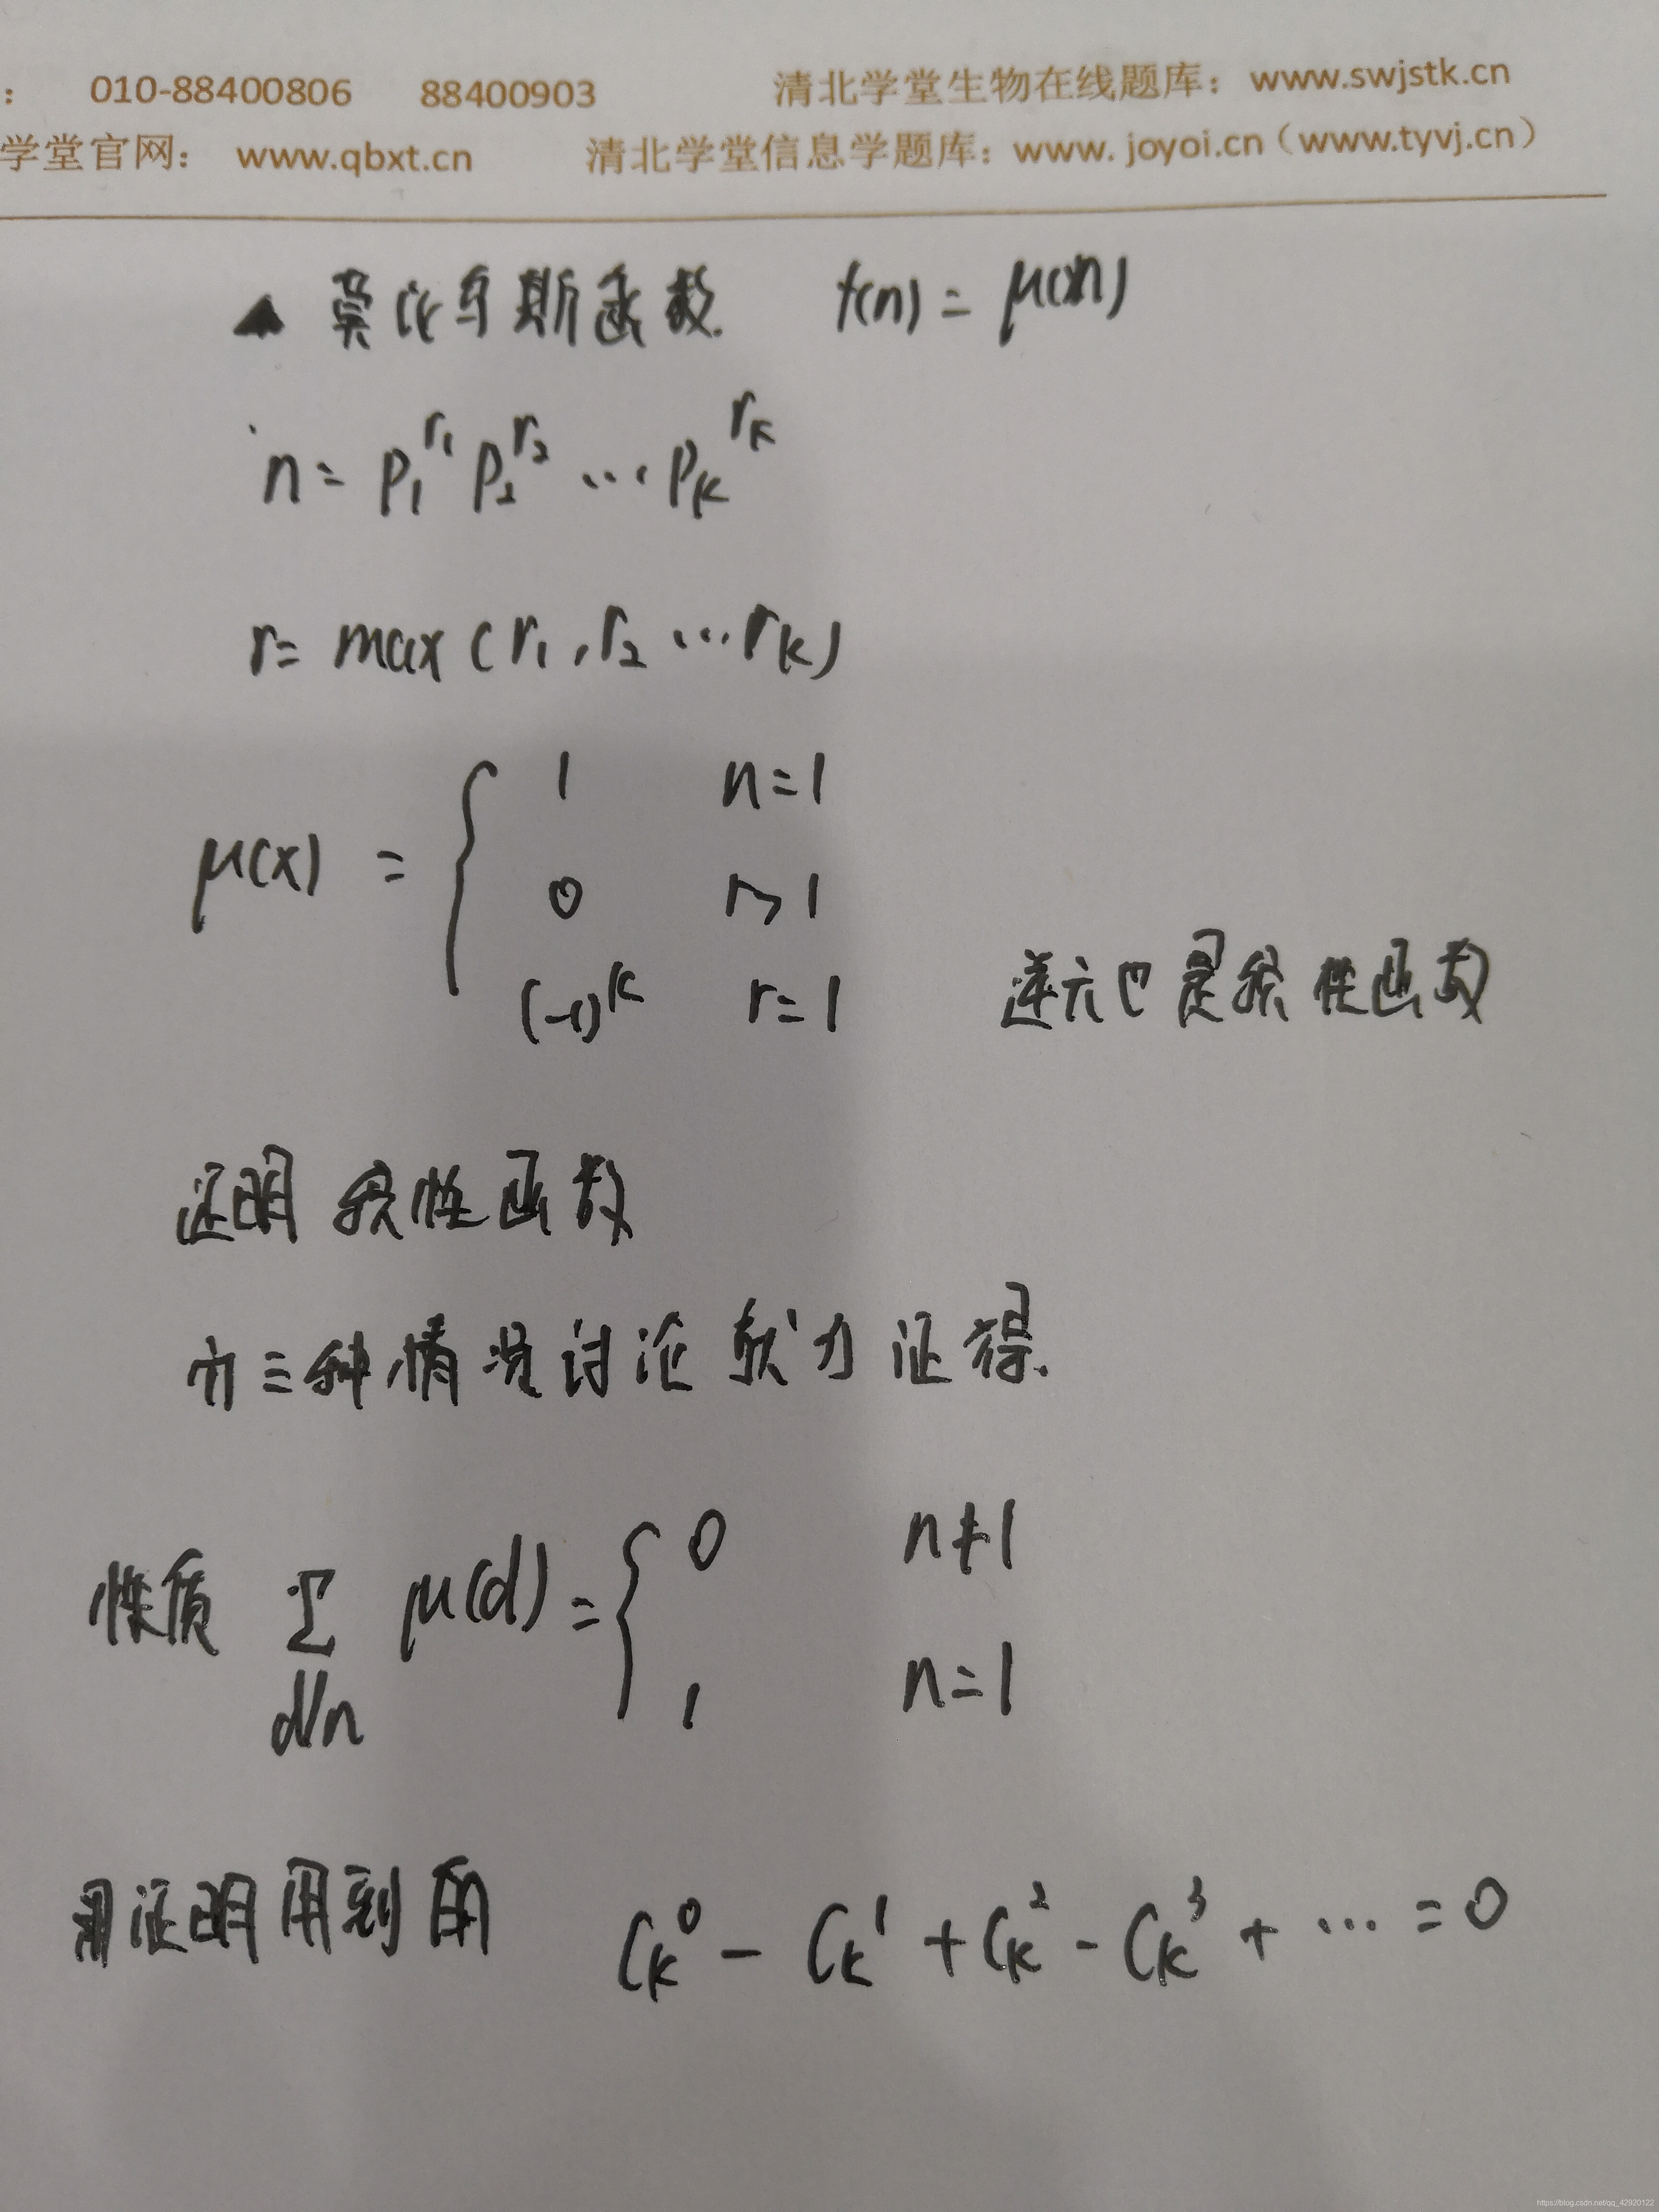 ： 010-88400806 88400903 清北学堂生物在线题库：www.swjstk.cn
学堂官网： www.qbxt.cn 清北学堂信息学题库：www. joyoi.cn（www.tyvj.cn）
▲ 莫比乌斯函数. f(n) = μ(n)
n = p₁^r₁ p₂^r₂ … p_k^r_k
r = max (r₁, r₂ … r_k)
μ(x) = { 1 n=1
0 r>1
(-1)^k r=1
逆元也是积性函数
证明 积性函数
三种情况讨论 就 证得.
性质 Σ_{d|n} μ(d) = { 0 n≠1
1 n=1
证明用到的 C_k^0 - C_k^1 + C_k^2 - C_k^3 + … = 0
https://blog.csdn.net/qq_42920122